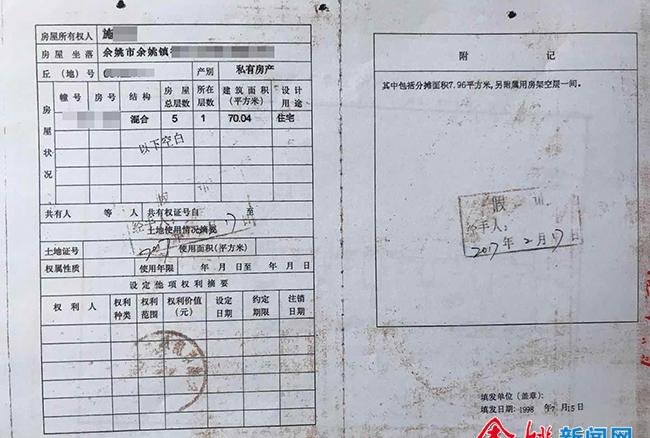 房屋所有权人 施
房屋坐落 余姚市余姚镇
丘（地）号 产别 私有房产
房屋状况
幢号 房号 结构 房屋总层数 所在层数 建筑面积（平方米） 设计用途
混合 5 1 70.04 住宅
以下空白
共有人 等 人 共有权证号自 至
土地使用情况摘要
土地证号 使用面积（平方米）
权属性质 使用年限 年 月 日至 年 月 日
设定他项权利摘要
权利人 权利种类 权利范围 权利价值（元） 设定日期 约定期限 注销日期
附记
其中包括分摊面积7.96平方米，另附属用房架空层一间。
假
经手人：
2017年2月17日
填发单位（盖章）：
填发日期：1998 年7月15日
余姚新闻网